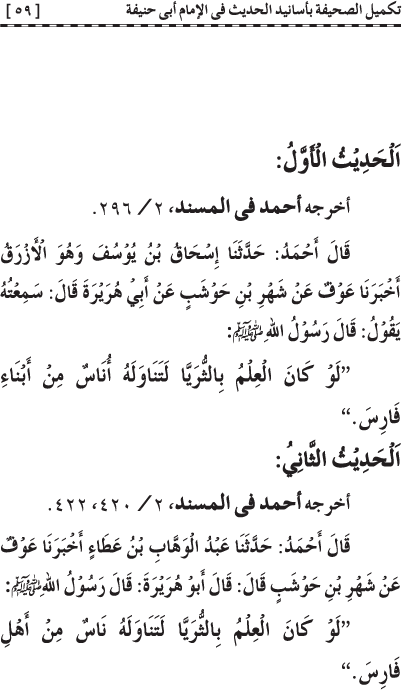 تكميل الصحيفة بأسانيد الحديث فى الإمام أبى حنيفة [ ٥٩ ]
اَلْحَدِيْثُ الْأَوَّلُ:
أخرجه أحمد فى المسند، ٢ / ٢٩٦.
قَالَ أَحْمَدُ: حَدَّثَنَا إِسْحَاقُ بْنُ يُوْسُفَ وَهُوَ الْأَزْرَقُ
أَخْبَرَنَا عَوْفٌ عَنْ شَهْرِ بْنِ حَوْشَبٍ عَنْ أَبِيْ هُرَيْرَةَ قَالَ: سَمِعْتُهُ
يَقُوْلُ: قَالَ رَسُوْلُ اللهِ ﷺ:
”لَوْ كَانَ الْعِلْمُ بِالثُّرَيَّا لَتَنَاوَلَهُ أُنَاسٌ مِنْ أَبْنَاءِ
فَارِسَ.“
اَلْحَدِيْثُ الثَّانِيُ:
أخرجه أحمد فى المسند، ٢ / ٤٢٠، ٤٢٢.
قَالَ أَحْمَدُ: حَدَّثَنَا عَبْدُ الْوَهَّابِ بْنُ عَطَاءٍ أَخْبَرَنَا عَوْفٌ
عَنْ شَهْرِ بْنِ حَوْشَبٍ قَالَ: قَالَ أَبُوْ هُرَيْرَةَ: قَالَ رَسُوْلُ اللهِ ﷺ:
”لَوْ كَانَ الْعِلْمُ بِالثُّرَيَّا لَتَنَاوَلَهُ نَاسٌ مِنْ أَهْلِ
فَارِسَ.“